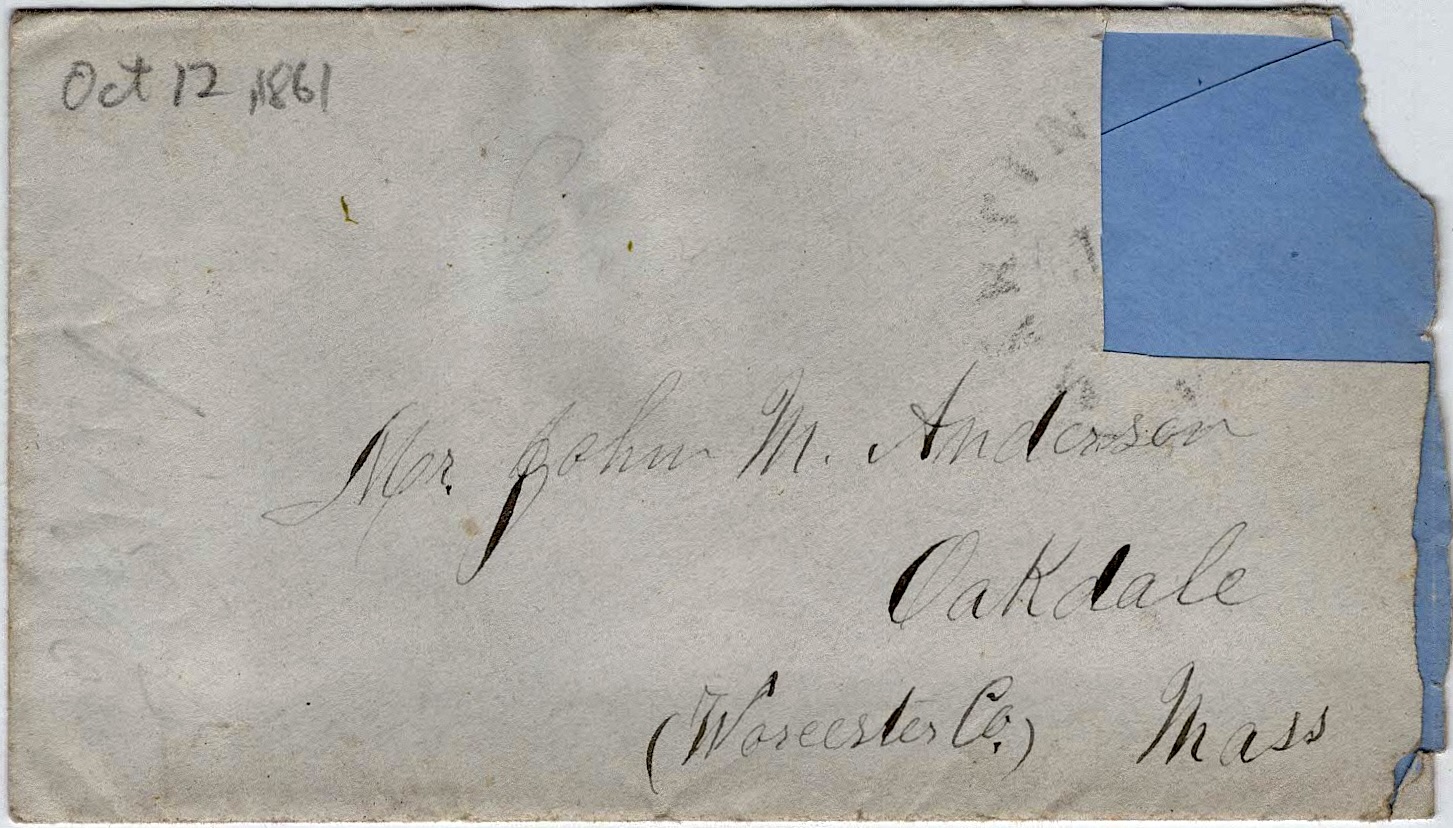 Oct 12, 1861
Mr. John M. Anderson
Oakdale
(Worcester Co.) Mass